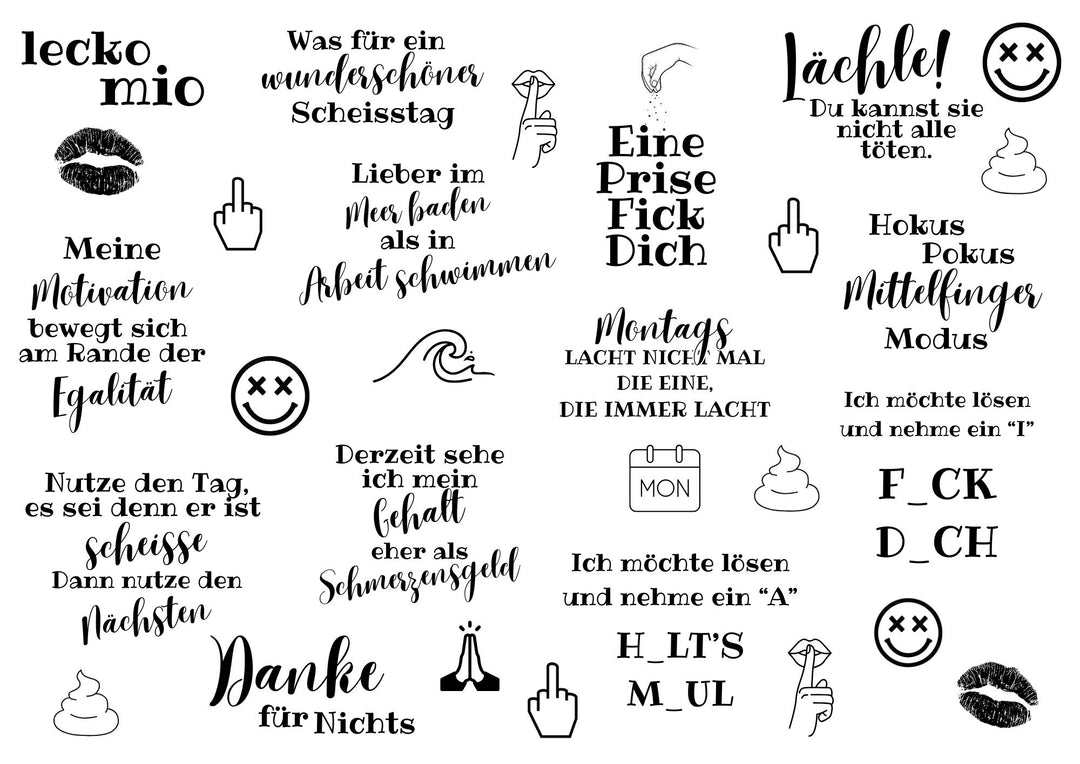 lecko
mio
Was für ein
wunderschöner
Scheisstag
Eine
Prise
Fick
Dich
Lächle!
Du kannst sie
nicht alle
töten.
Lieber im
Meer baden
als in
Arbeit schwimmen
Meine
Motivation
bewegt sich
am Rande der
Egalität
Hokus
Pokus
Mittelfinger
Modus
Montags
LACHT NICHT MAL
DIE EINE,
DIE IMMER LACHT
MON
Ich möchte lösen
und nehme ein “I”
F_CK
D_CH
Nutze den Tag,
es sei denn er ist
scheisse
Dann nutze den
Nächsten
Derzeit sehe
ich mein
Gehalt
eher als
Schmerzensgeld
Ich möchte lösen
und nehme ein “A”
H_LT’S
M_UL
Danke
für Nichts